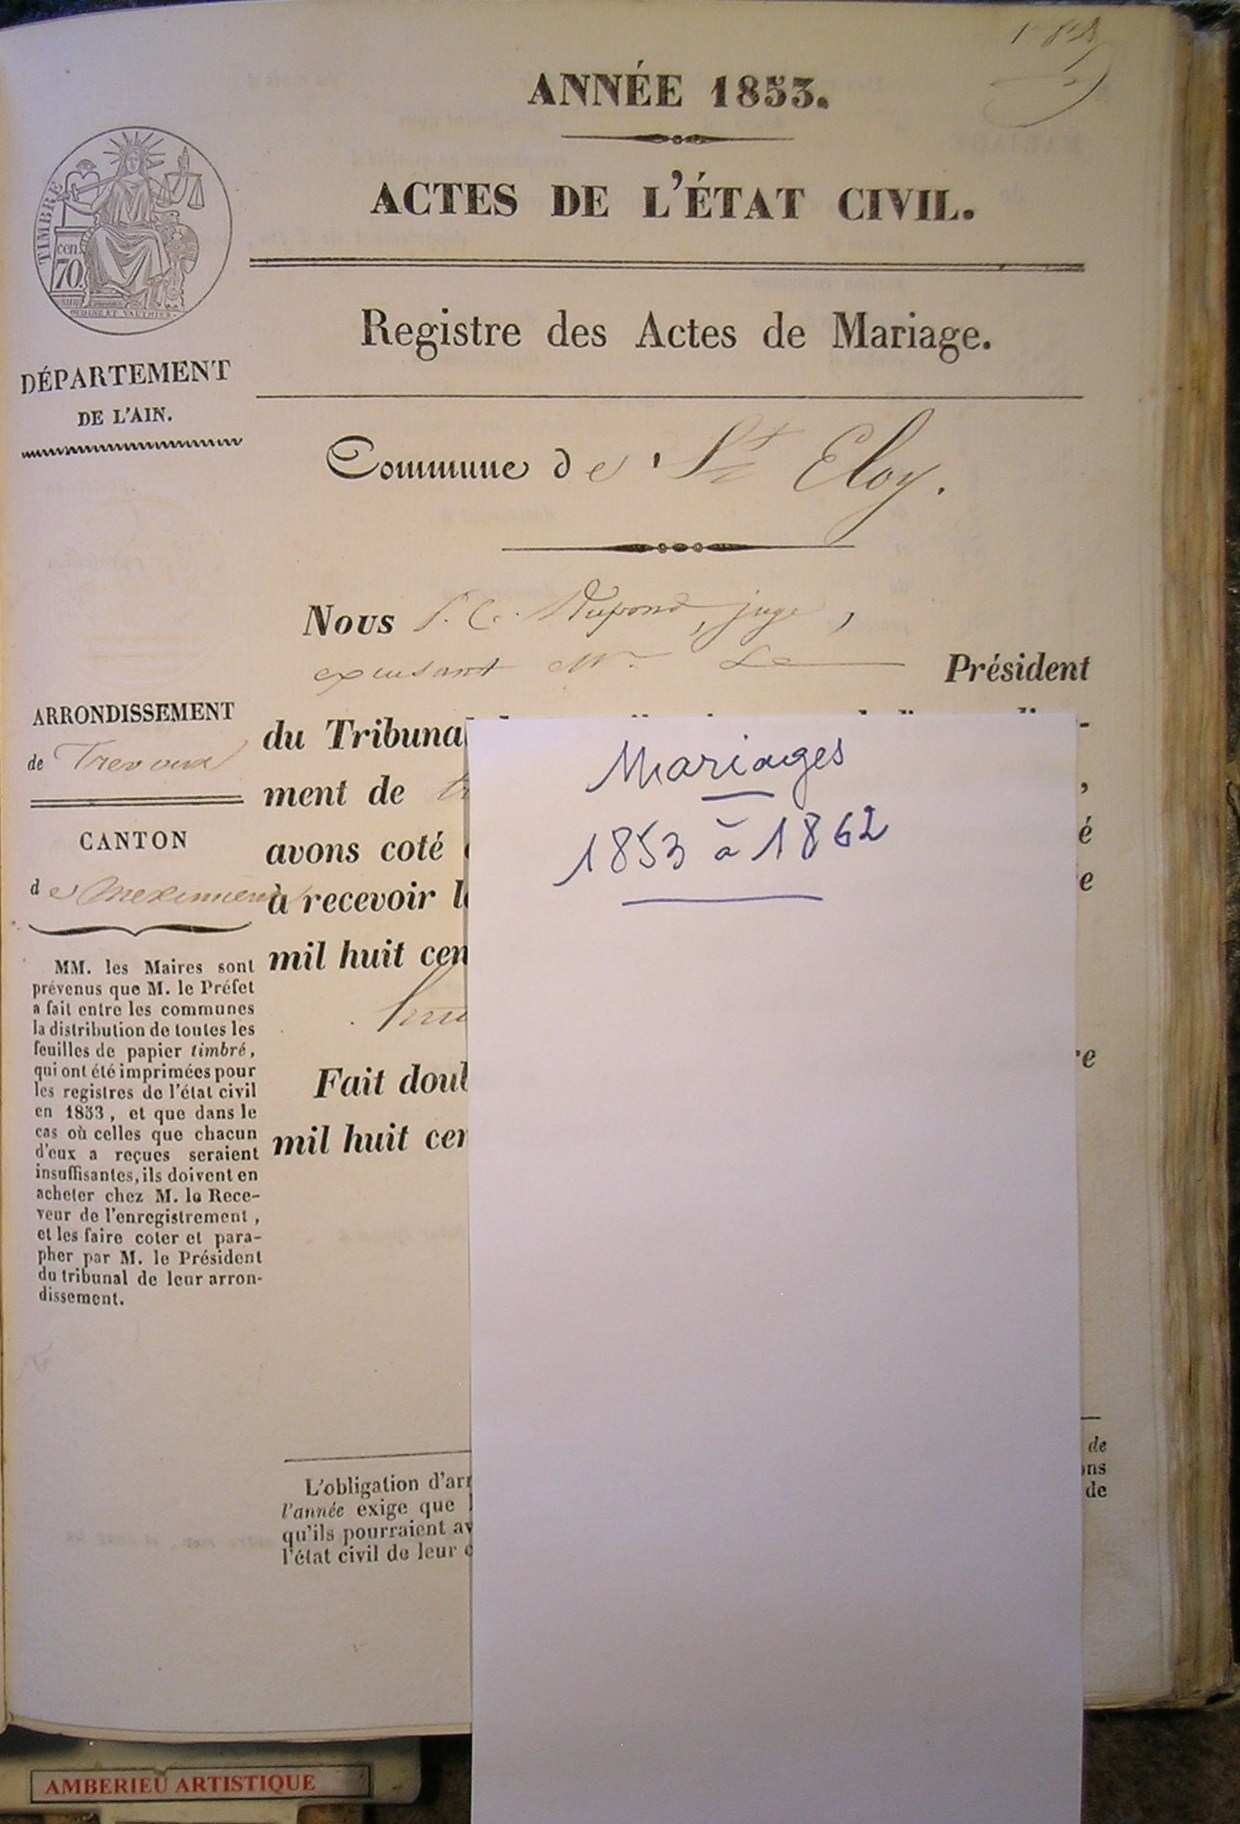 ANNÉE 1853.
ACTES DE L'ÉTAT CIVIL.
TIMBRE
cen.
70.
Registre des Actes de Mariage.
DÉPARTEMENT
DE L'AIN.
Commune de St Eloy.
Nous Dupond, juge,
excusant Mr Le Président
ARRONDISSEMENT
de Trevoux
CANTON
de Meximieux
du Tribunal
ment de
avons coté
à recevoir
mil huit cen
Fait doub
mil huit cen
MM. les Maires sont
prévenus que M. le Préfet
a fait entre les communes
la distribution de toutes les
feuilles de papier timbré,
qui ont été imprimées pour
les registres de l'état civil
en 1853, et que dans le
cas où celles que chacun
d'eux a reçues seraient
insuffisantes, ils doivent en
acheter chez M. le Rece-
veur de l'enregistrement,
et les faire coter et para-
pher par M. le Président
du tribunal de leur arron-
dissement.
Mariages
1853 à 1862
L'obligation d'arr
l'année exige que
qu'ils pourraient av
l'état civil de leur c
de
ons
de
AMBERIEU ARTISTIQUE